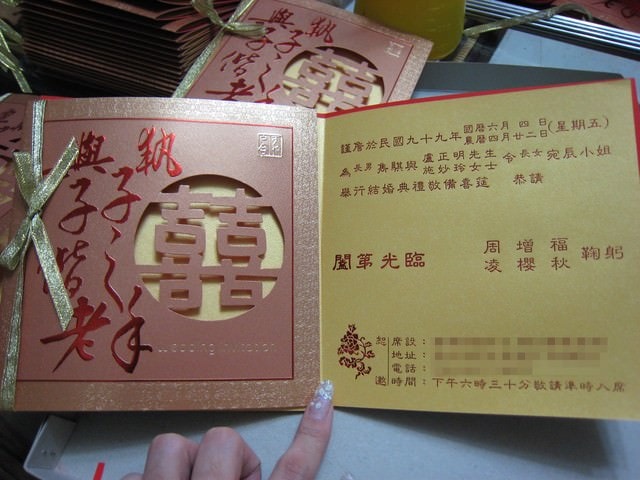 執子之手
與子偕老
囍
Wedding Invitation
謹詹於民國九十九年國曆六月四日農曆四月廿二日(星期五)
為長男雋騏與盧正明先生施妙玲女士令長女宛辰小姐
舉行結婚典禮敬備喜筵 恭請
闔第光臨
周增福
凌櫻秋
鞠躬
恕邀
席設:
地址:
電話:
時間:下午六時三十分敬請準時入席
執
與子
子偕老
囍